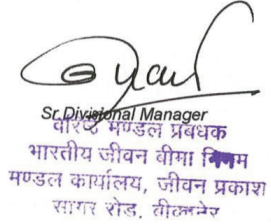 Sr.Divisional Manager
वरिष्ठ मण्डल प्रबंधक
भारतीय जीवन बीमा निगम
मण्डल कार्यालय, जीवन प्रकाश
सागर रोड, बीकानेर